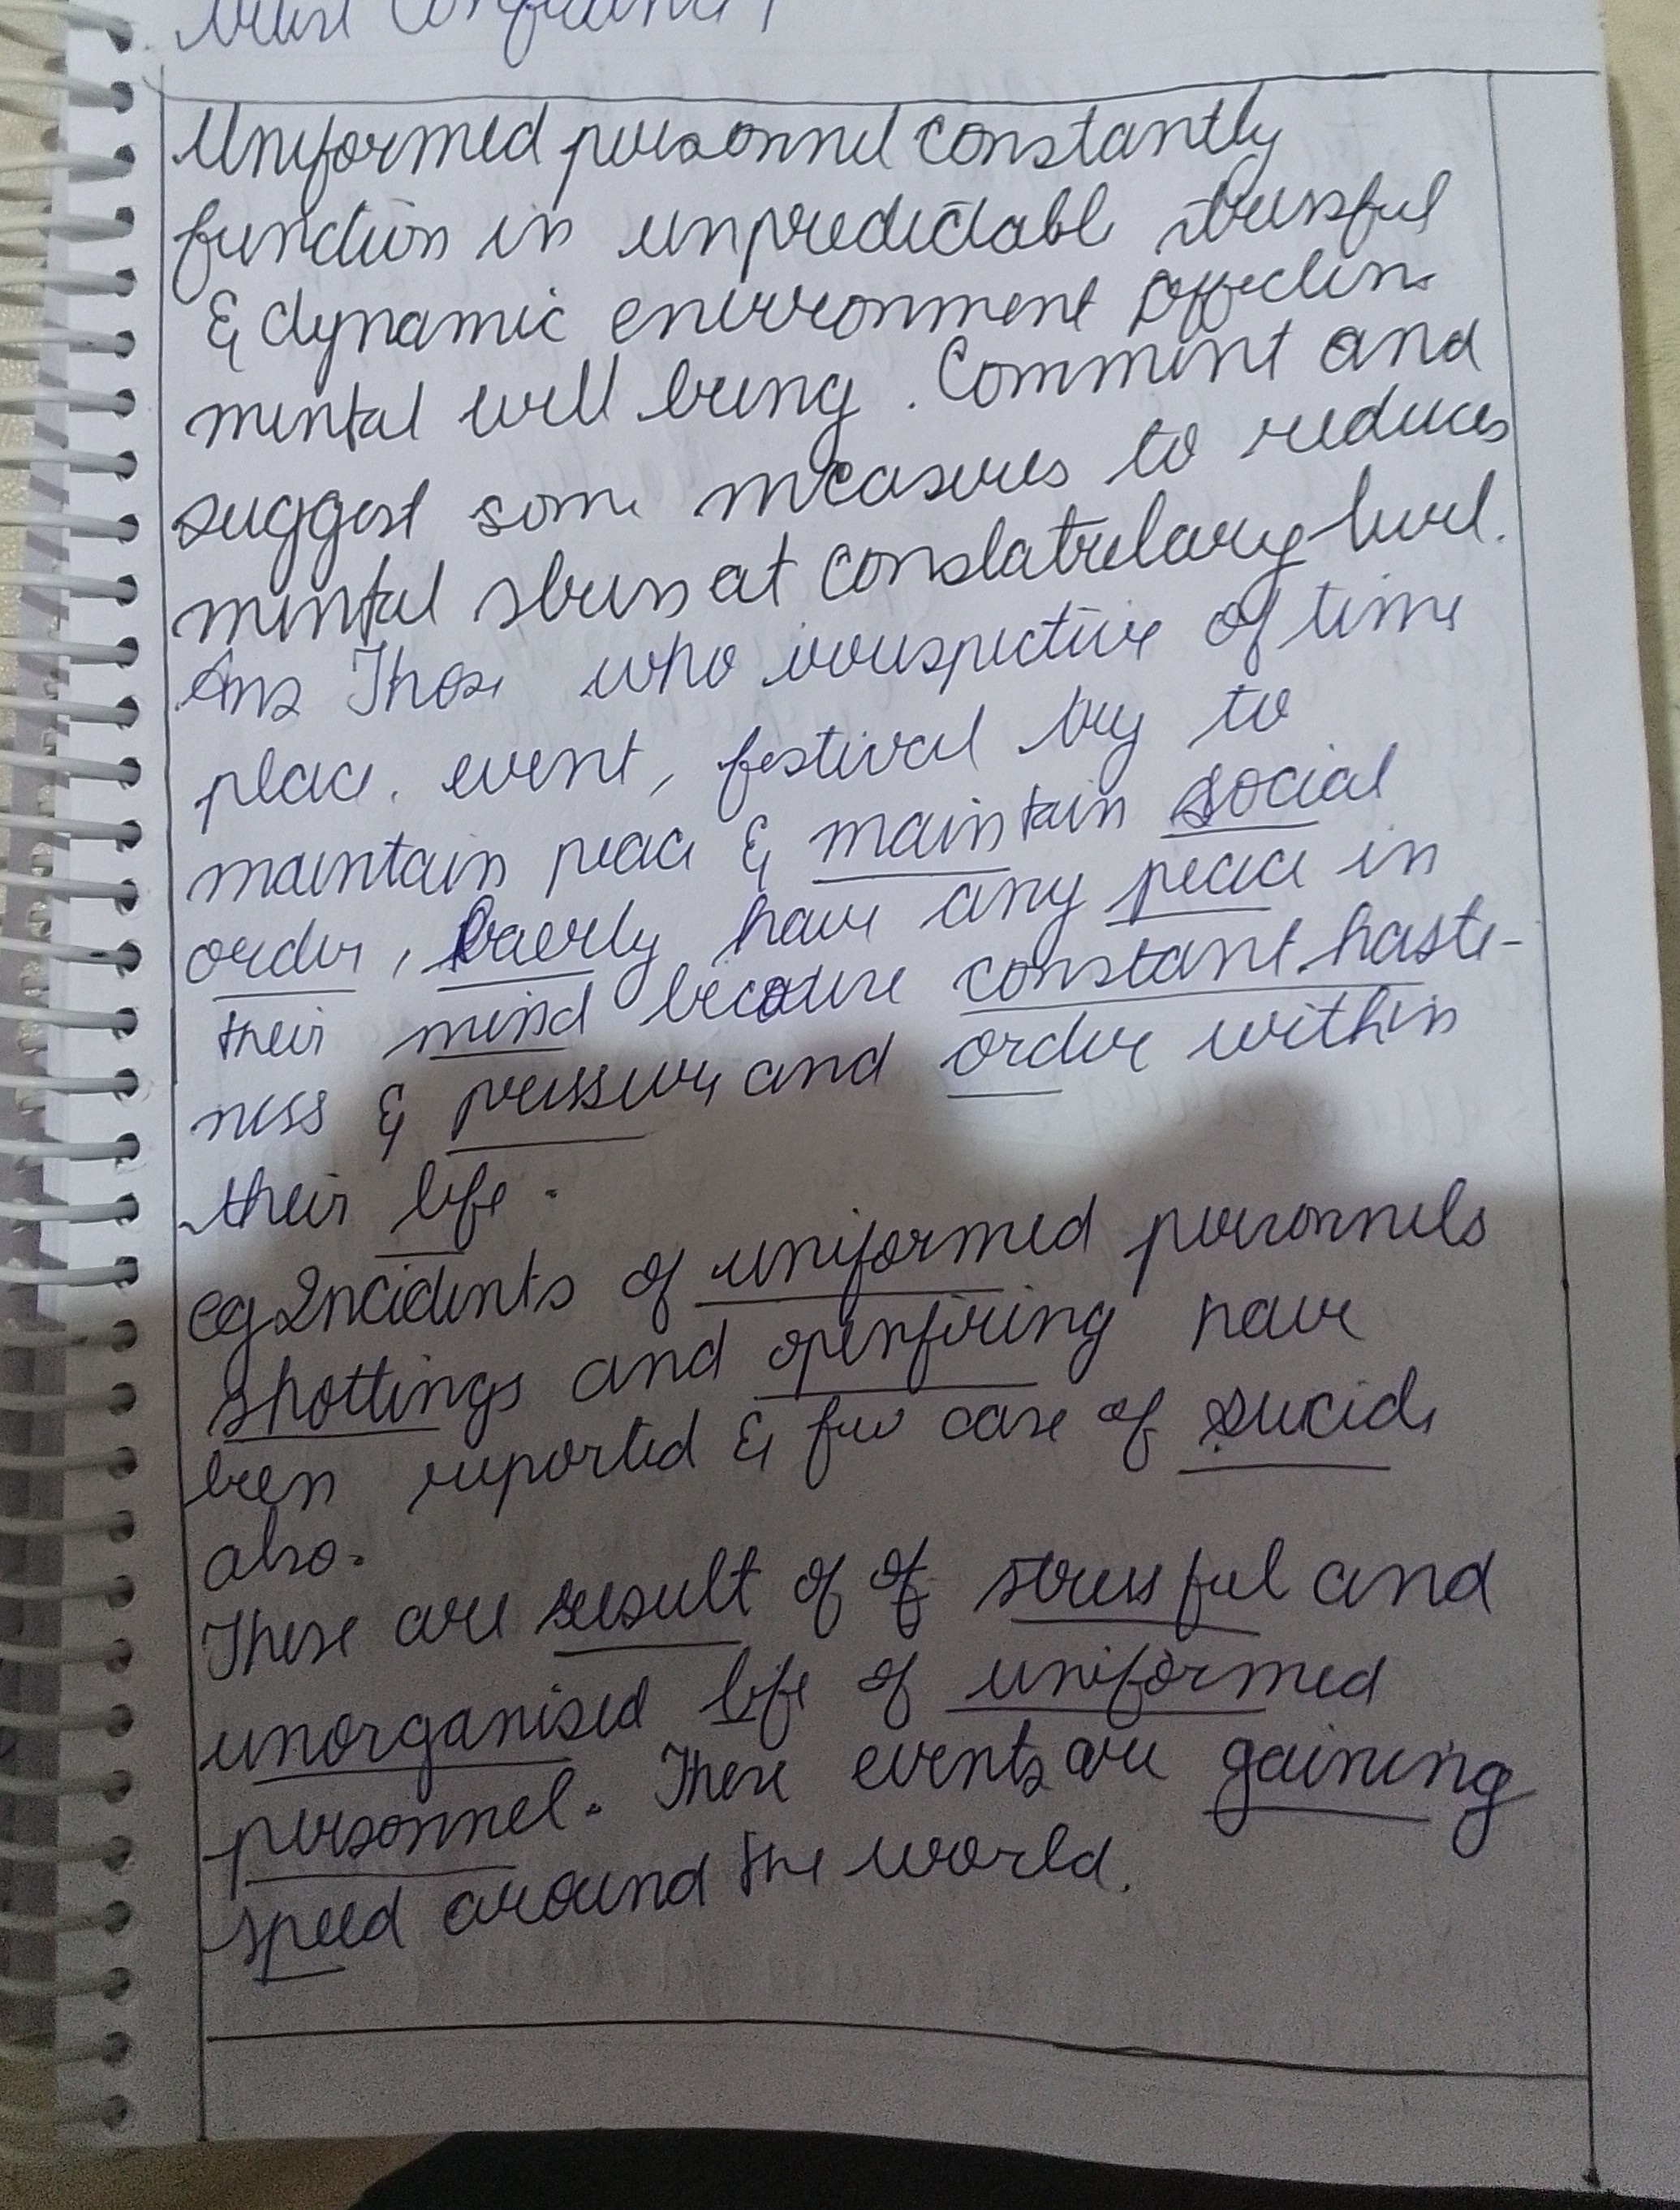 Uniformed personnel constantly
function in unpredictable stressful
& dynamic environment affectin
mental well being. Comment and
suggest some measures to reduces
mental stress at level.
Ans Those who irrespective of time
place. event, festival try to
maintain peace & maintain social
order, barely have any peace in
their mind because constant haste-
ness & pressure and order within
their life.
eg Incidents of uniformed personnels
shottings and openfiring have
been reported & few case of sucide
also.
These are result of of stressful and
unorganised life of uniformed
personnel. These events are gaining
speed around the world.